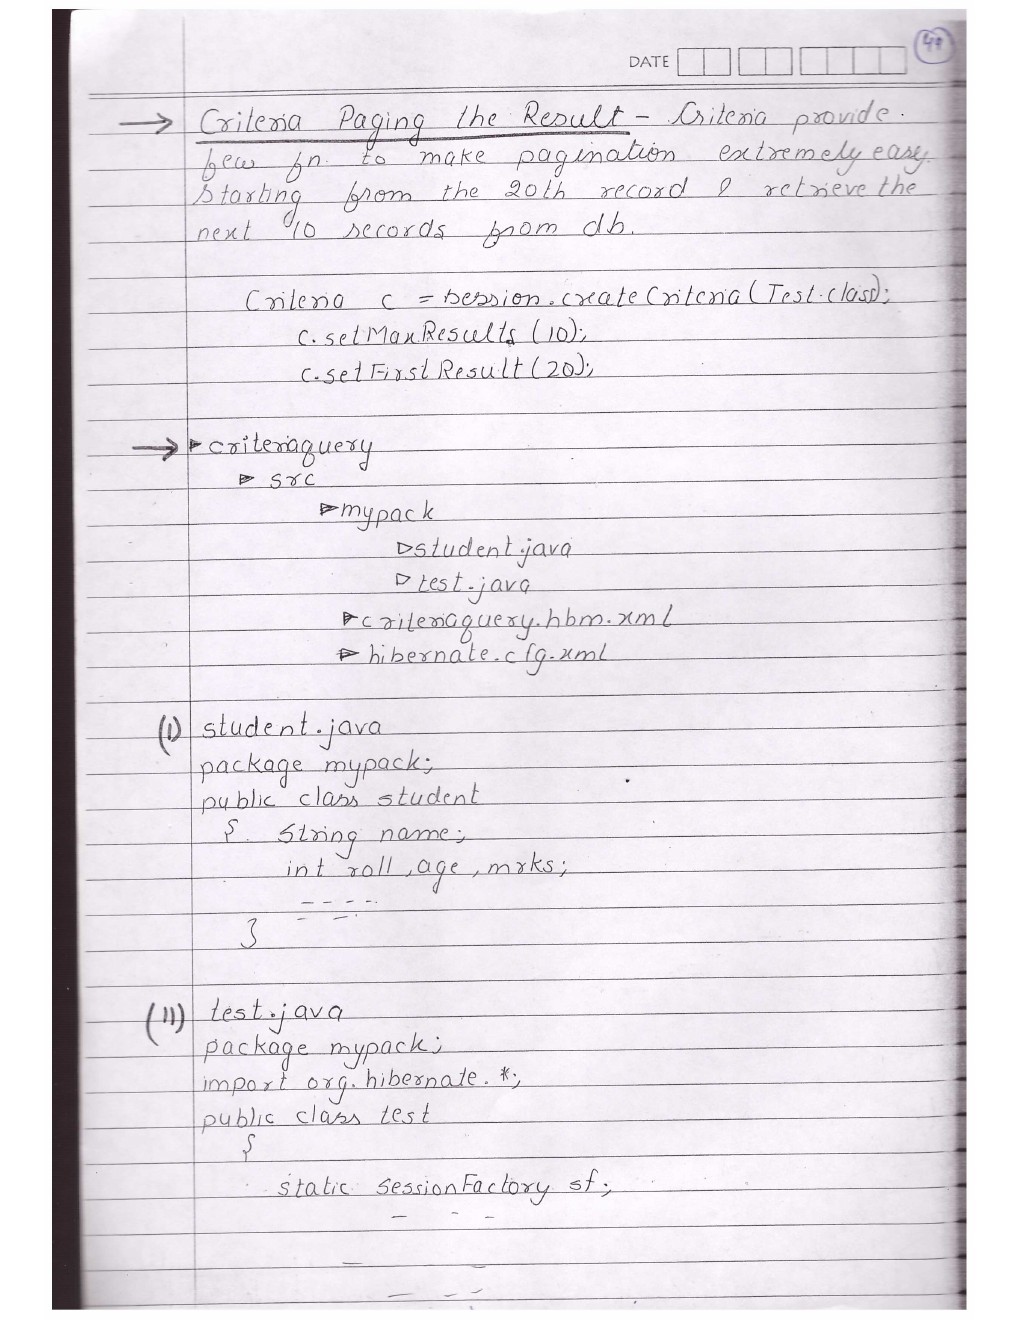 DATE
→ Criteria Paging the Result - Criteria provide.
few fn. to make pagination extremely easy.
Starting from the 20th record & retrieve the
next 10 records from db.
Criteria c = session.createCriteria(Test.class);
c.setMaxResults(10);
c.setFirstResult(20);
→ ▸ criteriaquery
▸ src
▸ mypack
▷ student.java
▷ test.java
▸ criteriaquery.hbm.xml
▸ hibernate.cfg.xml
(I) student.java
package mypack;
public class student
{ String name;
int roll, age, mrks;
- - - -
- - -
}
(II) test.java
package mypack;
import org.hibernate.*;
public class test
{
static SessionFactory sf;
- - -
-
- - -